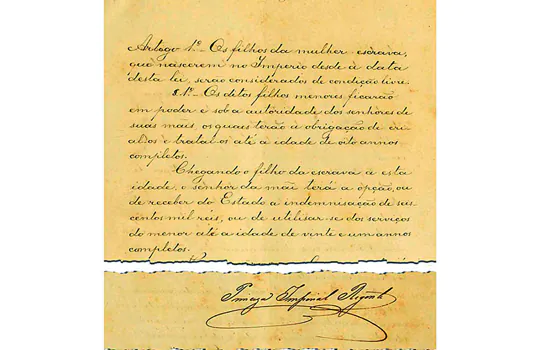 Artogo 1º Os filhos da mulher escrava,
que nascerem no Imperio desde a data
desta lei, serão considerados de condição livre.
§.1º Os ditos filhos menores ficarão
em poder e sob a autoridade dos senhores de
suas mãis, os quaes terão a obrigação de cri-
al-os e tratal-os até a idade de oito annos
completos.
Chegando o filho da escrava a esta
idade, o senhor da mãi terá a opção, ou
de receber do Estado a indemnisação de seis
centos mil reis, ou de utilisar-se dos serviços
do menor até a idade de vinte e um annos
completos.
Princeza Imperial Regente